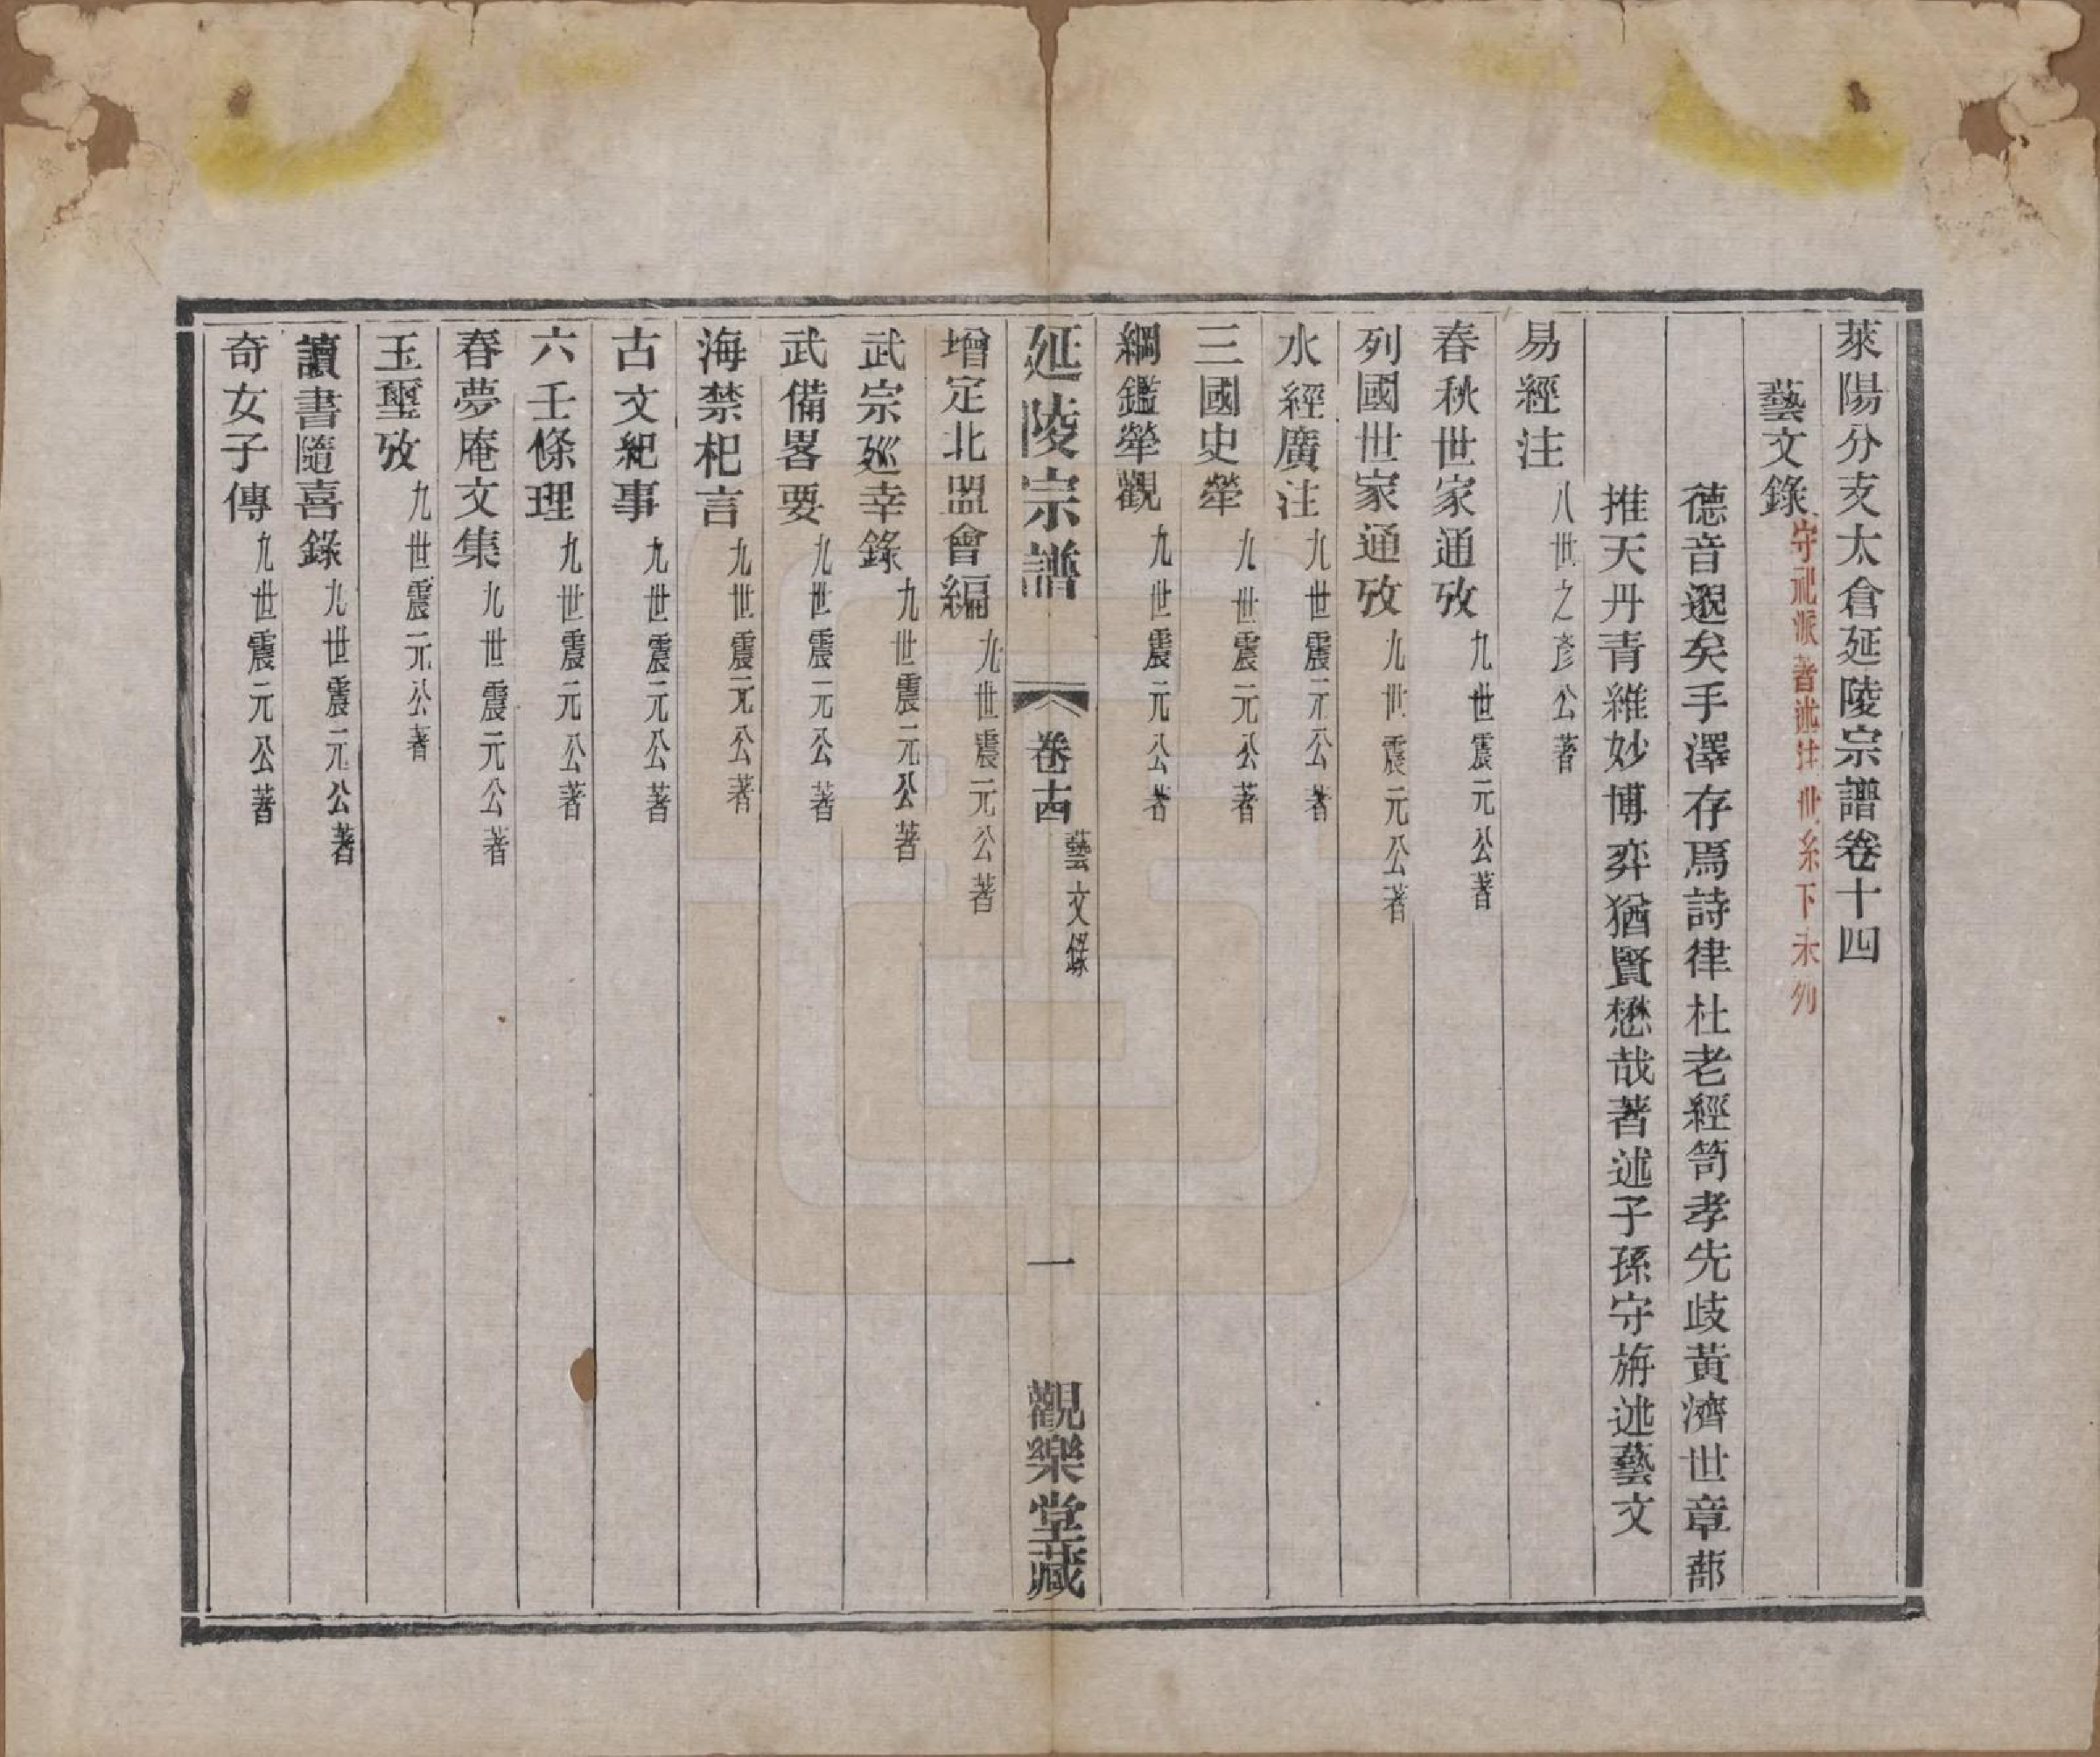 萊陽分支太倉延陵宗譜卷十四
藝文錄守祀派著述注世系下未列
德音遐矣手澤存焉詩律杜老經笥孝先歧黃濟世章蔀
推天丹青維妙博弈猶賢懋哉著述子孫守旃述藝文
易經注八世之彥公著
春秋世家通攷九世震元公著
列國世家通攷九世震元公著
水經廣注九世震元公著
三國史犖九世震元公著
綱鑑犖觀九世震元公著
延陵宗譜 卷十四 藝文錄 一 觀樂堂藏
增定北盟會編九世震元公著
武宗廵幸錄九世震元公著
武備畧要九世震元公著
海禁杞言九世震元公著
古文紀事九世震元公著
六壬條理九世震元公著
春夢庵文集九世震元公著
玉璽攷九世震元公著
讀書隨喜錄九世震元公著
奇女子傳九世震元公著